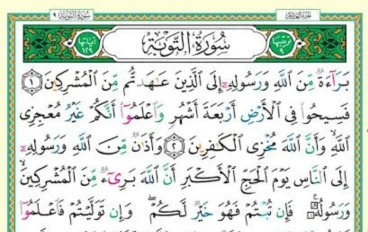 سُورَةُ التَّوْبَةِ ٩
سُورَةُ التَّوْبَةِ
تَرْتِيبُهَا ٩
آيَاتُهَا ١٢٩
بَرَآءَةٌ مِّنَ اللَّهِ وَرَسُولِهِۦٓ إِلَى الَّذِينَ عَٰهَدتُّم مِّنَ الْمُشْرِكِينَ ١
فَسِيحُوا۟ فِى الْأَرْضِ أَرْبَعَةَ أَشْهُرٍ وَاعْلَمُوٓا۟ أَنَّكُمْ غَيْرُ مُعْجِزِى
اللَّهِ ۙ وَأَنَّ اللَّهَ مُخْزِى الْكَٰفِرِينَ ٢ وَأَذَٰنٌ مِّنَ اللَّهِ وَرَسُولِهِۦٓ
إِلَى النَّاسِ يَوْمَ الْحَجِّ الْأَكْبَرِ أَنَّ اللَّهَ بَرِىٓءٌ مِّنَ الْمُشْرِكِينَ ۙ
وَرَسُولُهُۥ ۚ فَإِن تُبْتُمْ فَهُوَ خَيْرٌ لَّكُمْ ۖ وَإِن تَوَلَّيْتُمْ فَاعْلَمُوٓا۟